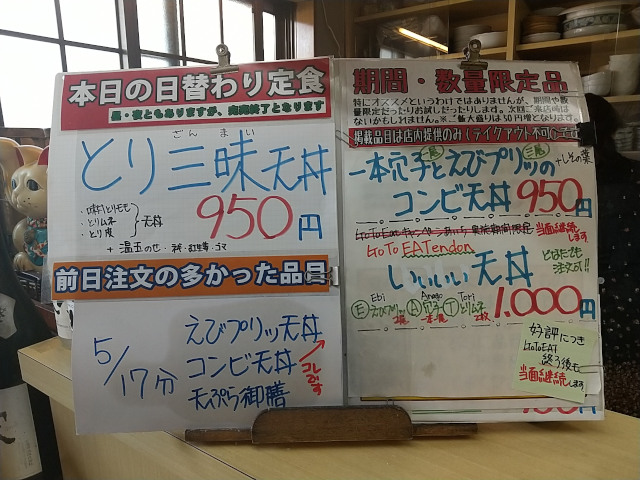 本日の日替わり定食
昼・夜ともありますが、完売終了となります
ざんまい
とり三昧天丼
・味付とりモモ
・とりムネ
・とり皮
天丼
950円
+温玉のせ・
前日注文の多かった品目
5/17分
えびプリッツ天丼
コンビ天丼
天ぷら御膳
コレです
期間・数量限定品
特にオススメというわけではありませんが、期間や数
量限定だったりお試しだったりします。次回ご来店時は
ないかもしれません。※ご飯大盛りは50円増となります。
掲載品目は店内提供のみ(テイクアウト不可)
一本穴子とえびプリッツの
+しその葉
コンビ天丼 950円
当面継続します
GoTo EATendon
いいいい天丼
とはだれでも
注文可!!
Ebi Anago Tori
Eえびプリッツ A穴子 Tとりムネ
2尾 一本 2枚
1.000円
好評につき
GoToEAT
終了後も
当面継続します